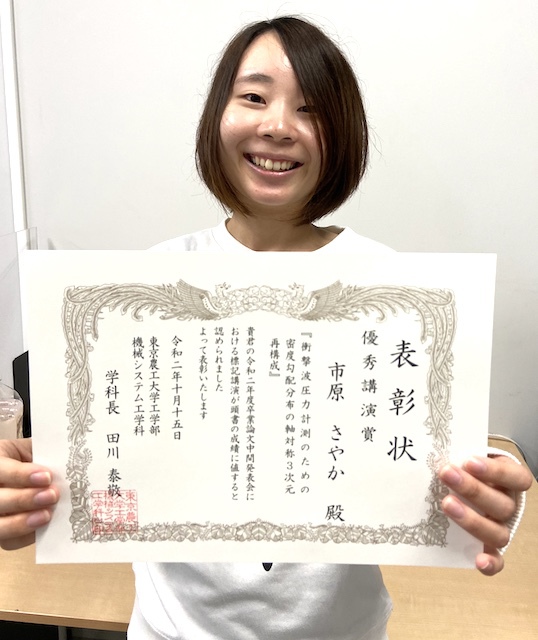 表彰状
優秀講演賞
『衝撃波圧力計測のための
密度勾配分布の軸対称３次元
再構成』
市原 さやか 殿
貴君の令和二年度卒業論文中間発表会に
おける標記講演が頭書の成績に値すると
認められました
よって表彰いたします
令和二年十月十五日
東京農工大学工学部
機械システム工学科
学科長 田川 泰敬